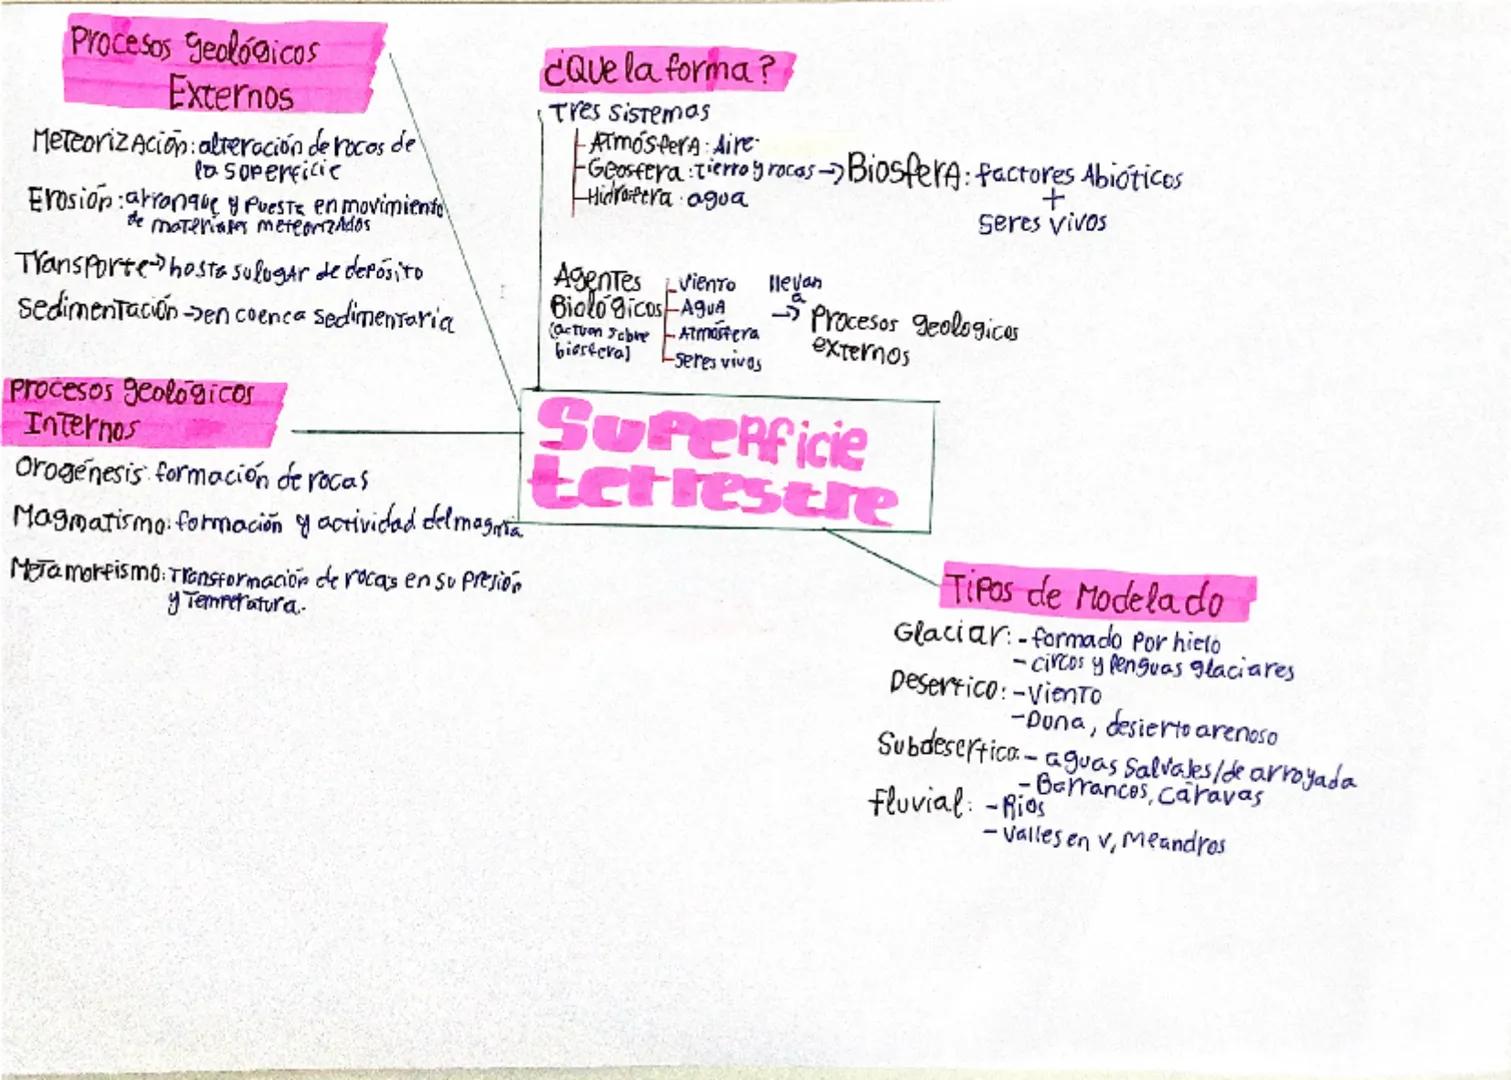 Procesos geológicos
Externos
Meteorización: alteración de rocas de
la superficie
Erosión: arranque y puesta en movimiento
de materiales meteorizados
Transporte → hasta su lugar de depósito
Sedimentación → en cuenca sedimentaria
Procesos geológicos
Internos
Orogénesis: formación de rocas
Magmatismo: formación y actividad del magma
Metamorfismo: Transformación de rocas en su presión
y Temperatura.
¿Que la forma?
Tres sistemas
Atmósfera: Aire
Geosfera: tierra y rocas → Biosfera: factores Abióticos
Hidrosfera: agua
+
seres vivos
Agentes
Biológicos
(actuan sobre
biosfera)
Viento
Agua
Atmósfera
seres vivos
llevan
a
→ Procesos geologicos
externos
Superficie
terrestre
Tipos de Modelado
Glaciar: - formado por hielo
- circos y lenguas glaciares
Desertico: - Viento
- Duna, desierto arenoso
Subdesertico: - aguas salvajes/de arroyada
- Barrancos, cáravas
fluvial: - Rios
- Valles en v, Meandros